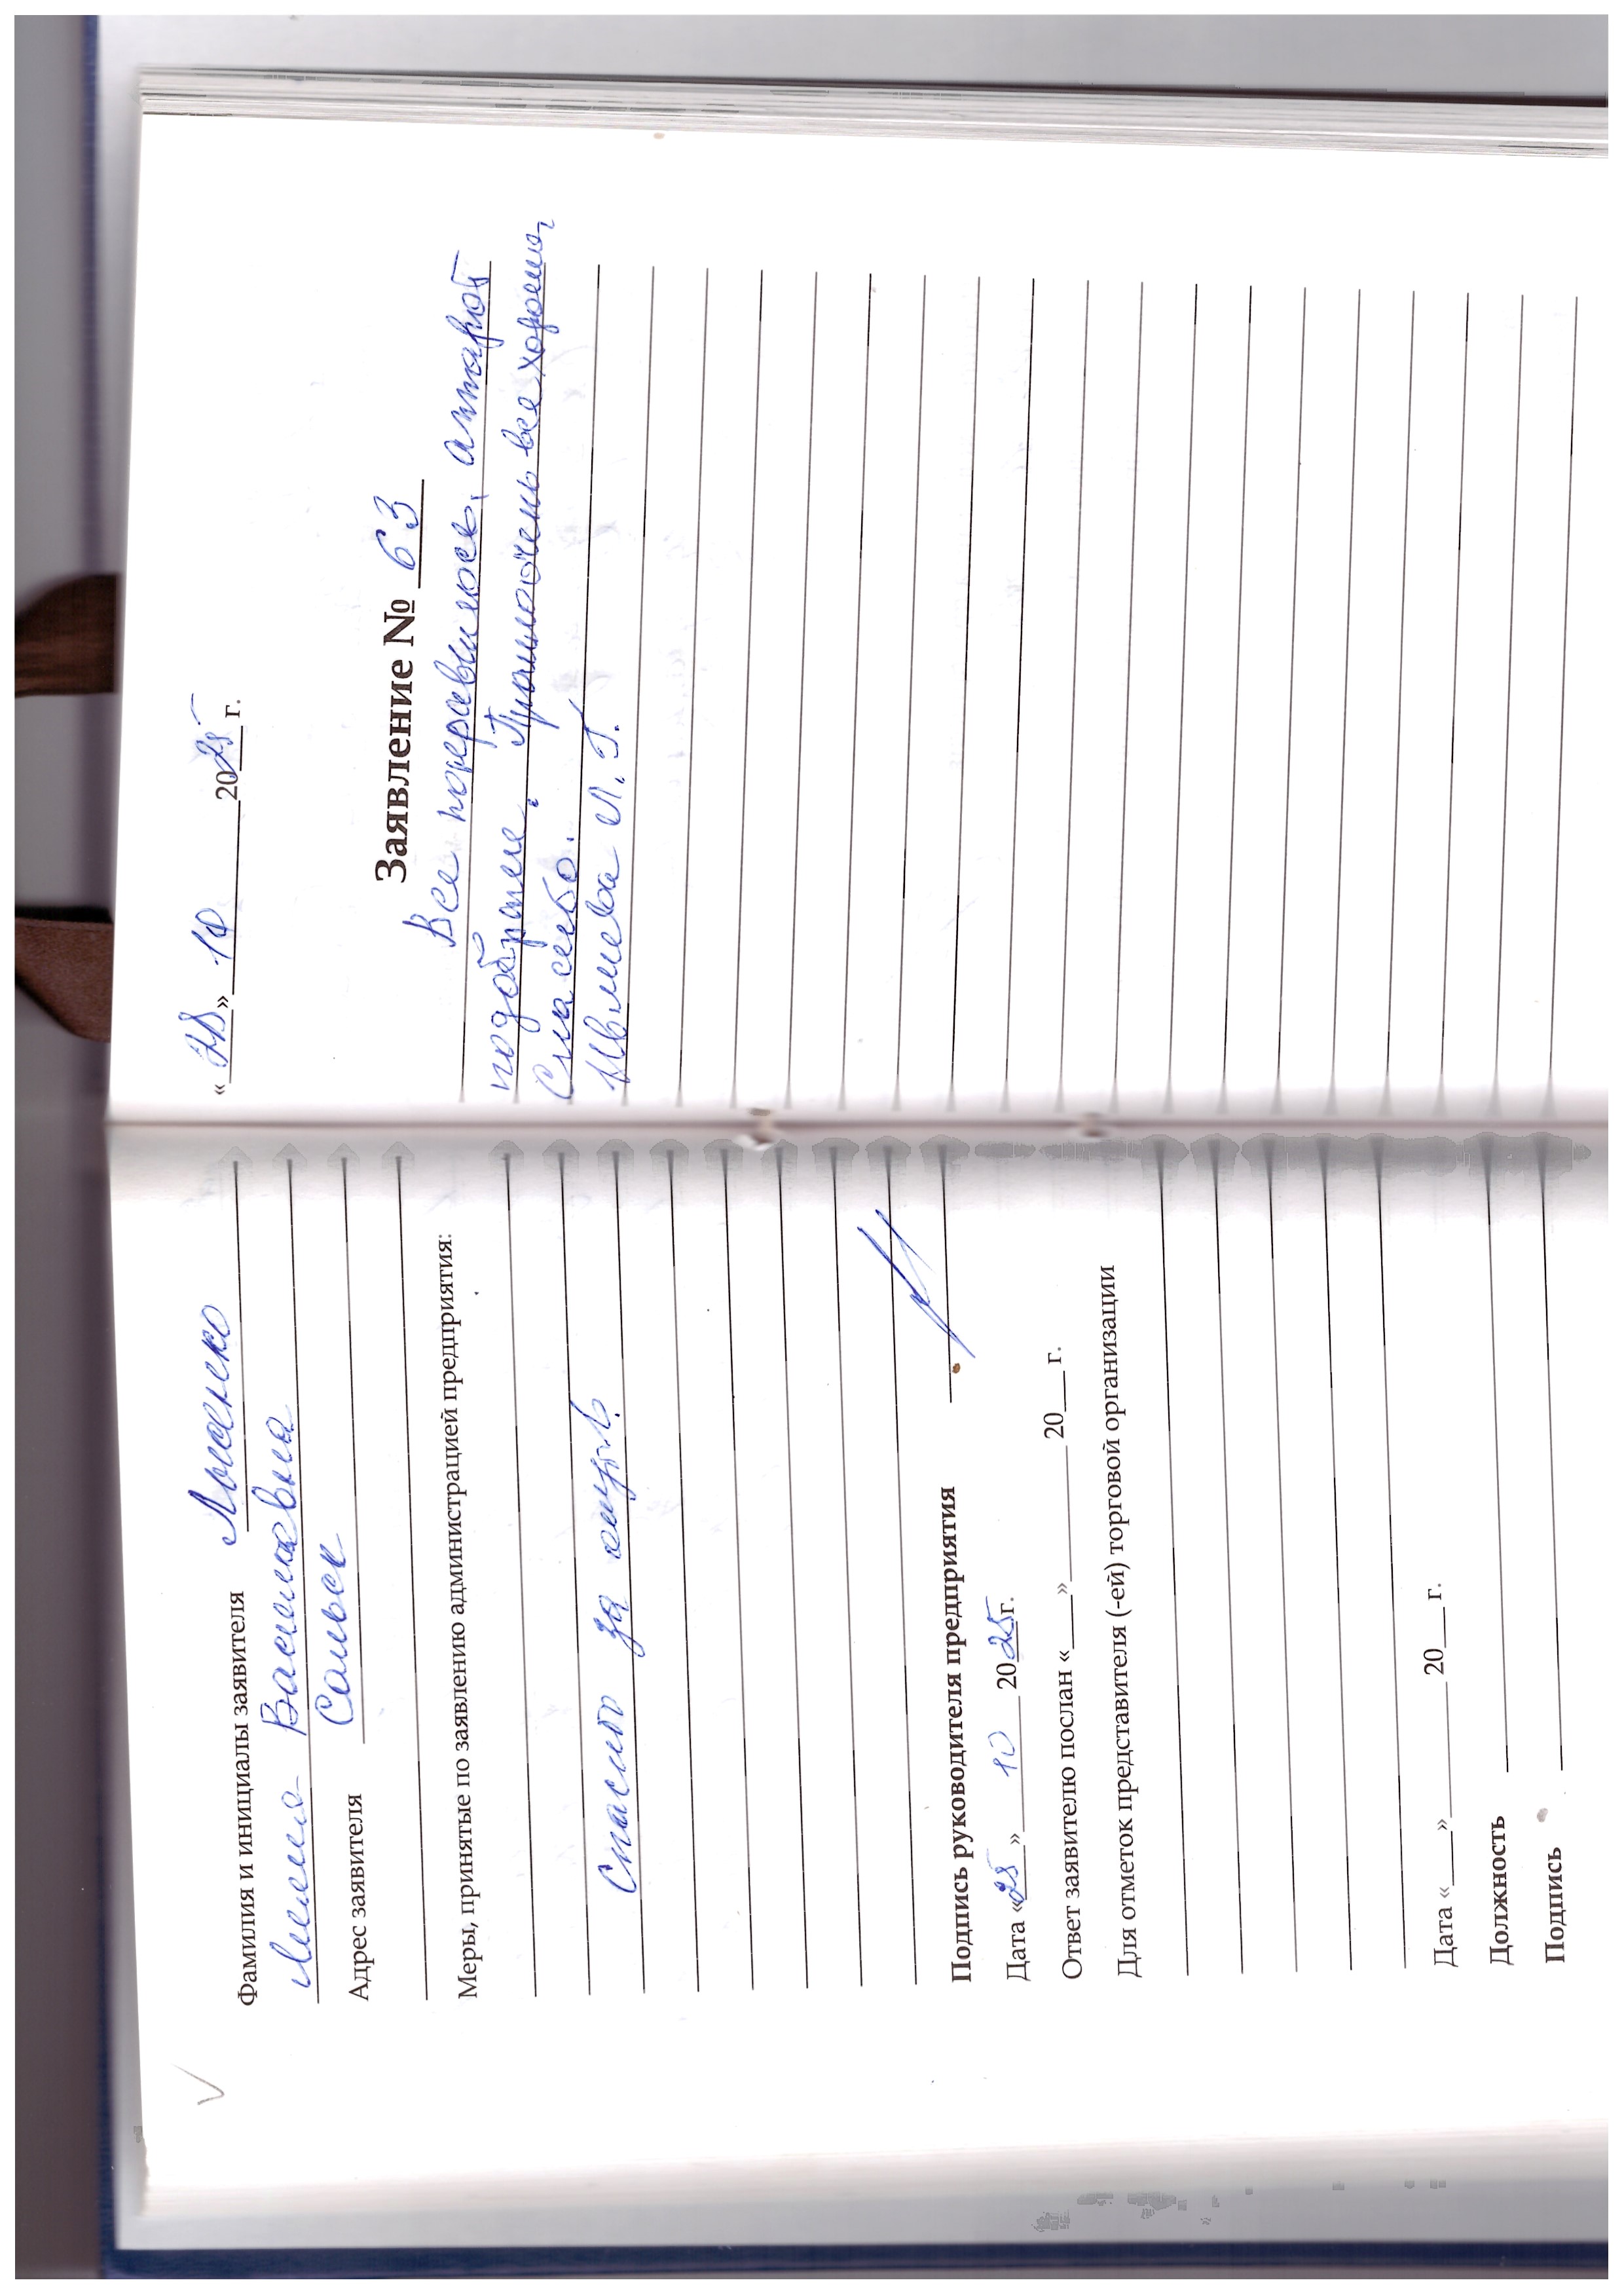 Фамилия и инициалы заявителя Лысенко
Лилия Васильевна
Адрес заявителя Сальск
Меры, принятые по заявлению администрацией предприятия:
Спасибо за отзыв.
Подпись руководителя предприятия
Дата «25» 10 2025г.
Ответ заявителю послан «___»__________ 20___г.
Для отметок представителя (-ей) торговой организации
Дата «____»__________ 20___г.
Должность
Подпись
«28» 10 2025 г.
Заявление № 63
Все понравилось, аппарат
подобрали. Приточень все хорошо,
Спасибо.
Л. Г.